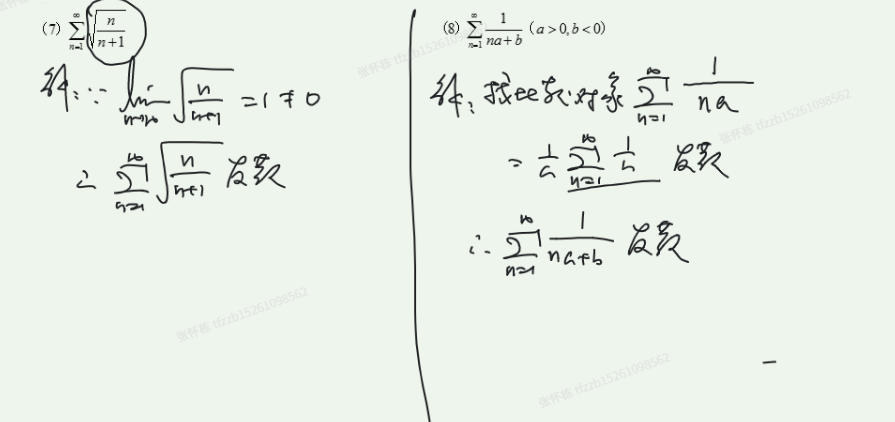 (7) $\sum_{n=1}^{\infty} \sqrt{\frac{n}{n+1}}$
解:∵ $\lim_{n\to\infty} \sqrt{\frac{n}{n+1}} = 1 \neq 0$
∴ $\sum_{n=1}^{\infty} \sqrt{\frac{n}{n+1}}$ 发散
(8) $\sum_{n=1}^{\infty} \frac{1}{na+b}$ (a>0,b<0)
解:找比较对象 $\sum_{n=1}^{\infty} \frac{1}{na}$
$= \frac{1}{a} \sum_{n=1}^{\infty} \frac{1}{n}$ 发散
∴ $\sum_{n=1}^{\infty} \frac{1}{na+b}$ 发散
张怀栋 tfzzb15261098562
张怀栋 tfzzb15261098562
张怀栋 tfzzb15261098562
张怀栋 tfzzb15261098562